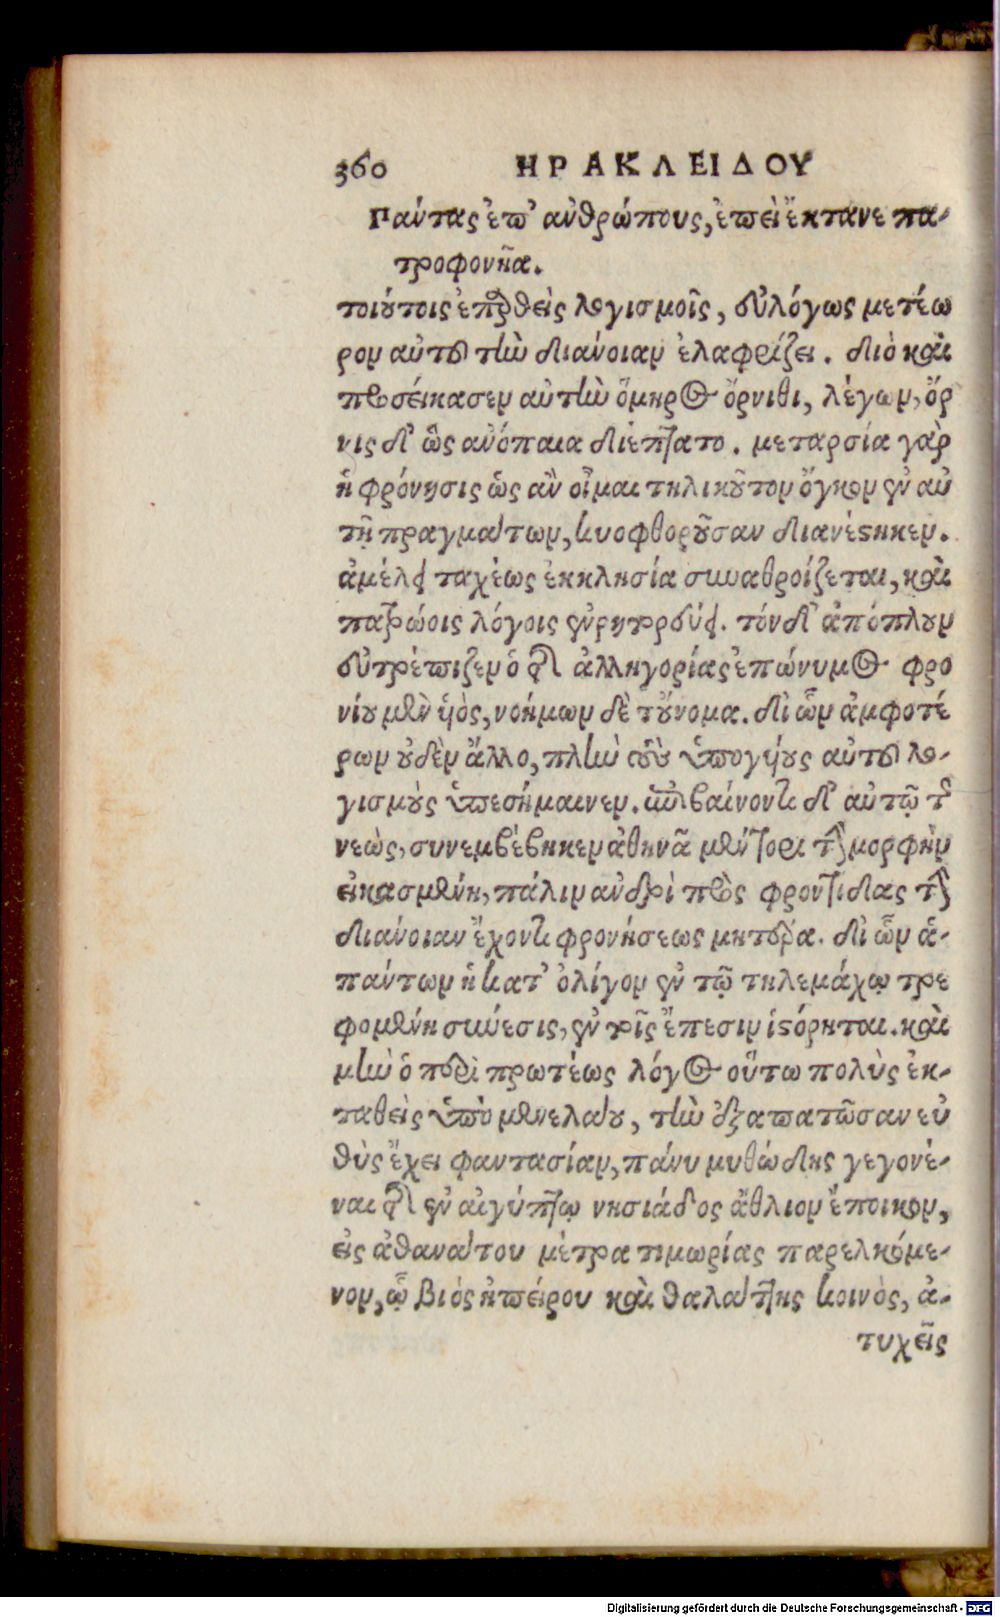 360 ΗΡΑΚΛΕΙΔΟΥ
Πάντας ἐπ' ἀνθρώπους, ἐπεὶ ἔκτανε πα-
τροφονῆα.
τοιούτοις ἐπαρθεὶς λογισμοῖς, εὐλόγως μετέω
ρον αὐτοῦ τὴν διάνοιαν ἐλαφρίζει. διὸ καὶ
προσείκασεν αὐτὴν ὅμηρος ὄρνιθι, λέγων, ὄρ
νις δ' ὣς ἀνόπαια διέπτατο. μεταρσία γὰρ
ἡ φρόνησις ὡς ἂν οἶμαι τηλικοῦτον ὄγκον ἐν αὑ
τῇ πραγμάτων, κυοφθοροῦσαν διανέστηκεν.
ἀμέλει ταχέως ἐκκλησία συναθροίζεται, καὶ
πατρῴοις λόγοις ἐνρητορεύει. τόν δ' ἀπόπλουν
εὐτρέπιζεν ὁ τῆς ἀλληγορίας ἐπώνυμος φρο
νίου μὲν ὑὸς, νοήμων δὲ τοὔνομα. δι' ὧν ἀμφοτέ
ρων οὐδὲν ἄλλο, πλὴν τοὺς ὑπογύους αὐτοῦ λο-
γισμοὺς ὑπεσήμαινεν. ἐπιβαίνοντι δ' αὐτῷ τῆς
νεὼς, συνεμβέβηκεν ἀθηνᾶ μέντορι τὴν μορφὴν
εἰκασμένη, πάλιν ἀνδρὶ πρὸς φροντίδας τὴν
διάνοιαν ἔχοντι φρονήσεως μητέρα. δι' ὧν ἁ-
πάντων ἡ κατ' ὀλίγον ἐν τῷ τηλεμάχῳ τρε
φομένη σύνεσις, ἐν τοῖς ἔπεσιν ἱστόρηται. καὶ
μὴν ὁ περὶ πρωτέως λόγος οὕτω πολὺς ἐκ-
ταθεὶς ὑπὸ μενελάου, τὴν ἐξαπατῶσαν εὐ
θὺς ἔχει φαντασίαν, πάνυ μυθώδης γεγονέ-
ναι τῆς ἐν αἰγύπτῳ νησιάδος ἄθλιον ἔποικον,
εἰς ἀθανάτου μέτρα τιμωρίας παρελκόμε-
νον, ᾧ βιός ἠπείρου καὶ θαλάττης κοινὸς, ἀ-
τυχεῖς
Digitalisierung gefördert durch die Deutsche Forschungsgemeinschaft - DFG